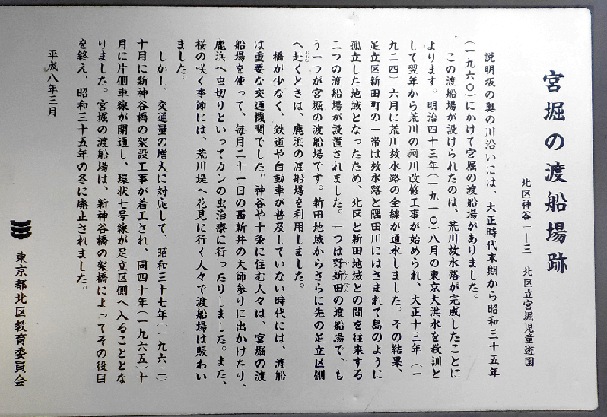 宮堀の渡船場跡
北区神谷一ー三 北区立宮堀児童遊園
説明板の奥の川沿いには、大正時代末期から昭和三十五年
(一九六〇)にかけて宮堀の渡船場がありました。
この渡船場が設けられたのは、荒川放水路が完成したことに
よります。明治四十三年(一九一〇)八月の東京大洪水を教訓と
して翌年から荒川の河川改修工事が始められ、大正十三年(一
九二四)六月に荒川放水路の全線が通水しました。その結果、
足立区新田町の一帯は放水路と隅田川にはさまれて島のように
孤立した地域となったため、北区と新田地域との間を往来する
二つの渡船場が設置されました。一つは野新田の渡船場で、も
う一つが宮堀の渡船場です。新田地域からさらに先の足立区側
へ赴くときは、鹿浜の渡船場を利用しました。
橋が少なく、鉄道や自動車が普及していない時代には、渡船
は重要な交通機関でした。神谷や十条に住む人々は、宮堀の渡
船場を使って、毎月二十一日の西新井の大師参りに出かけたり、
鹿浜へ虫切りといってカンの虫治療に行ったりしました。また、
桜の咲く季節には、荒川堤へ花見に行く人々で渡船場は賑わい
ました。
しかし、交通量の増大に対応して、昭和三十七年(一九六二)
十月に新神谷橋の架設工事が着工され、同四十年(一九六五)十
月に片側車線が開通し、環状七号線が足立区側へ入ることとな
りました。宮堀の渡船場は、新神谷橋の架橋によってその役目
を終え、昭和三十五年の冬に廃止されました。
平成八年三月
東京都北区教育委員会